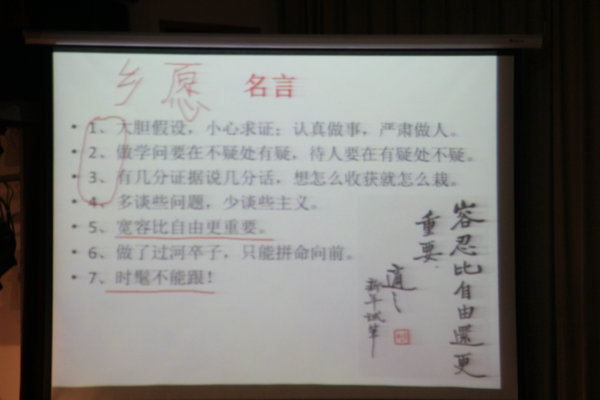 乡愿 名言
• 1、大胆假设，小心求证；认真做事，严肃做人。
• 2、做学问要在不疑处有疑，待人要在有疑处不疑。
• 3、有几分证据说几分话，想怎么收获就怎么栽。
• 4、多谈些问题，少谈些主义。
• 5、宽容比自由更重要。
• 6、做了过河卒子，只能拼命向前。
• 7、时髦不能跟！
容忍比自由還更
重要
適之
新年试筆